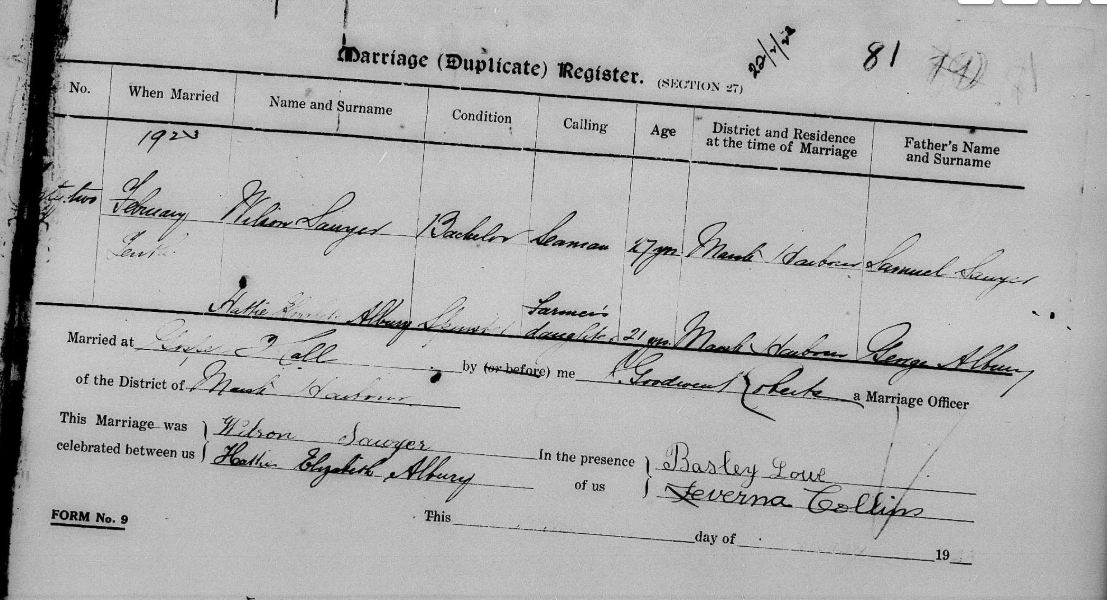 22/2/23
81
Marriage (Duplicate) Register. (SECTION 27)
No. When Married Name and Surname Condition Calling Age District and Residence at the time of Marriage Father's Name and Surname
1923
two February Wilson Sawyer Bachelor Seaman 27 yrs Marsh Harbour Samuel Sawyer
Tenth
Hattie Albury Spinster Farmer's daughter 21 yrs Marsh Harbour George Albury
Married at Gospel Hall by (or before) me Goodwent Roberts a Marriage Officer
of the District of Marsh Harbour
This Marriage was celebrated between us Wilson Sawyer
Hattie Elizabeth Albury
In the presence of us Basley Lowe
Leverna Collins
FORM No. 9 This day of 19